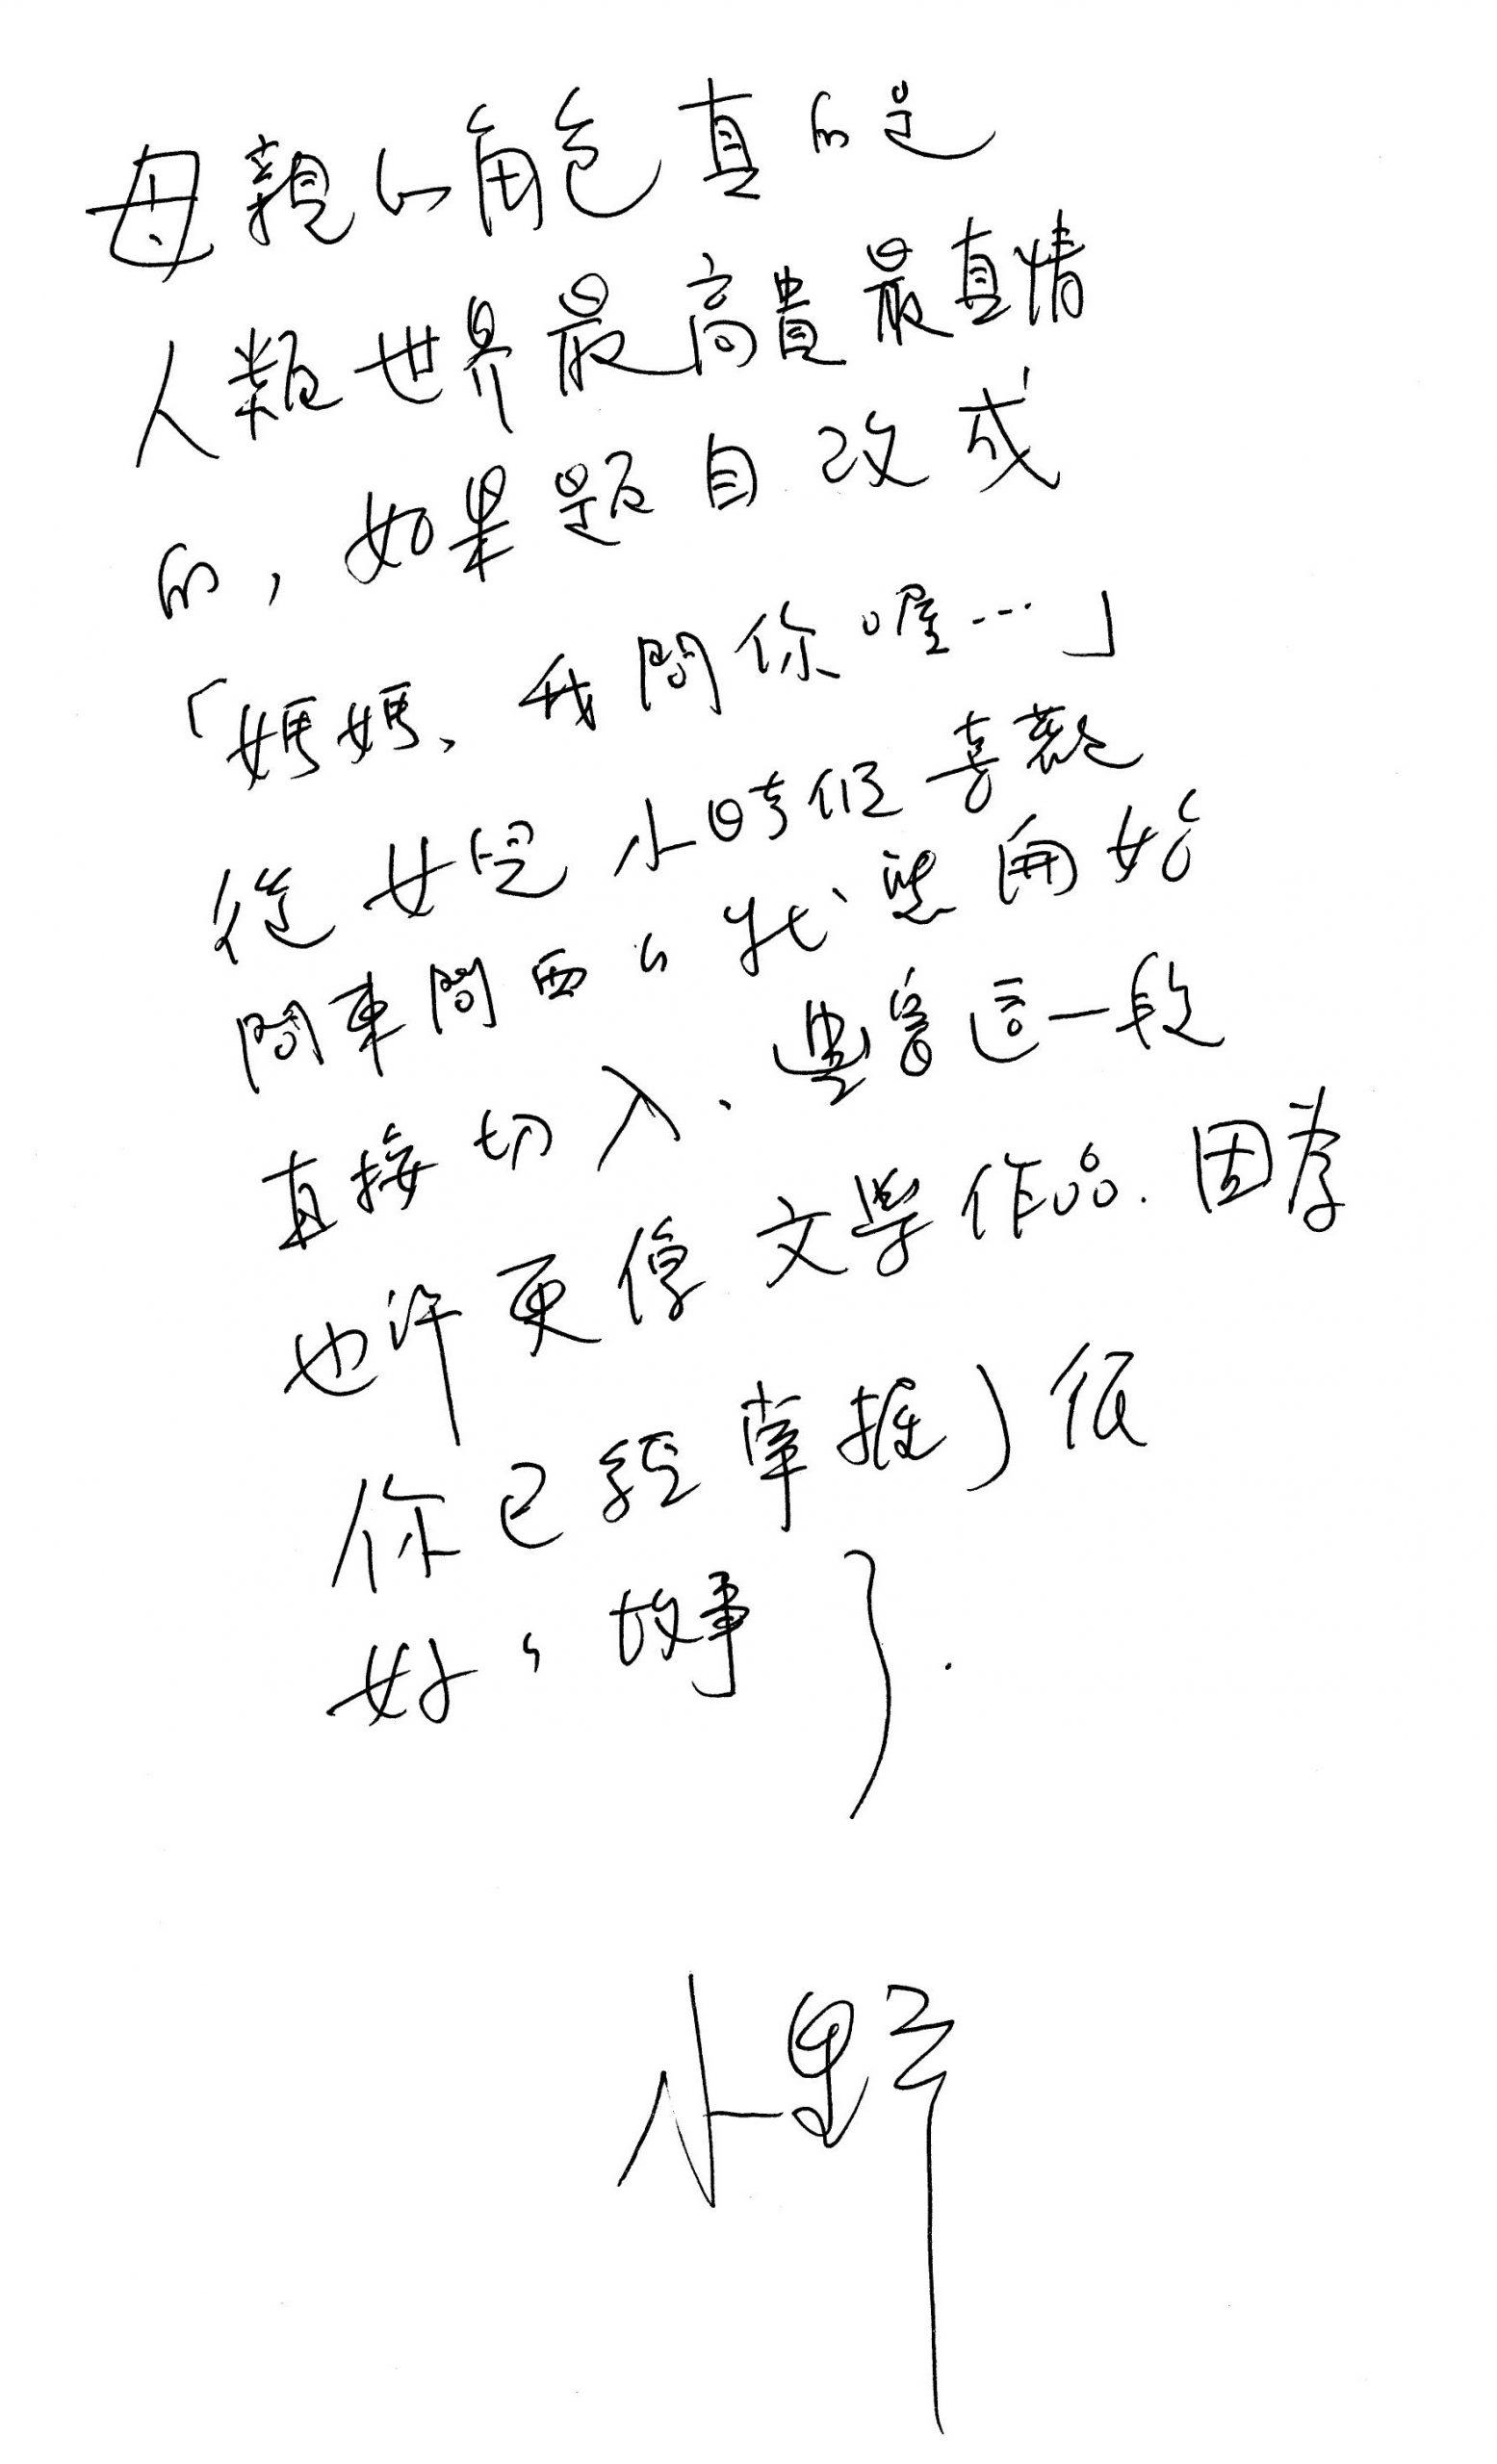 母親的角色真的是
人類世界最高貴最真情
的,如果題目改成
「媽媽、我問你喔…」
從女兒小時候喜歡
問東問西的狀態開始
直接切入、這一段
也許更像文學作品.因為
你已經掌握了很
好的故事了.
小野